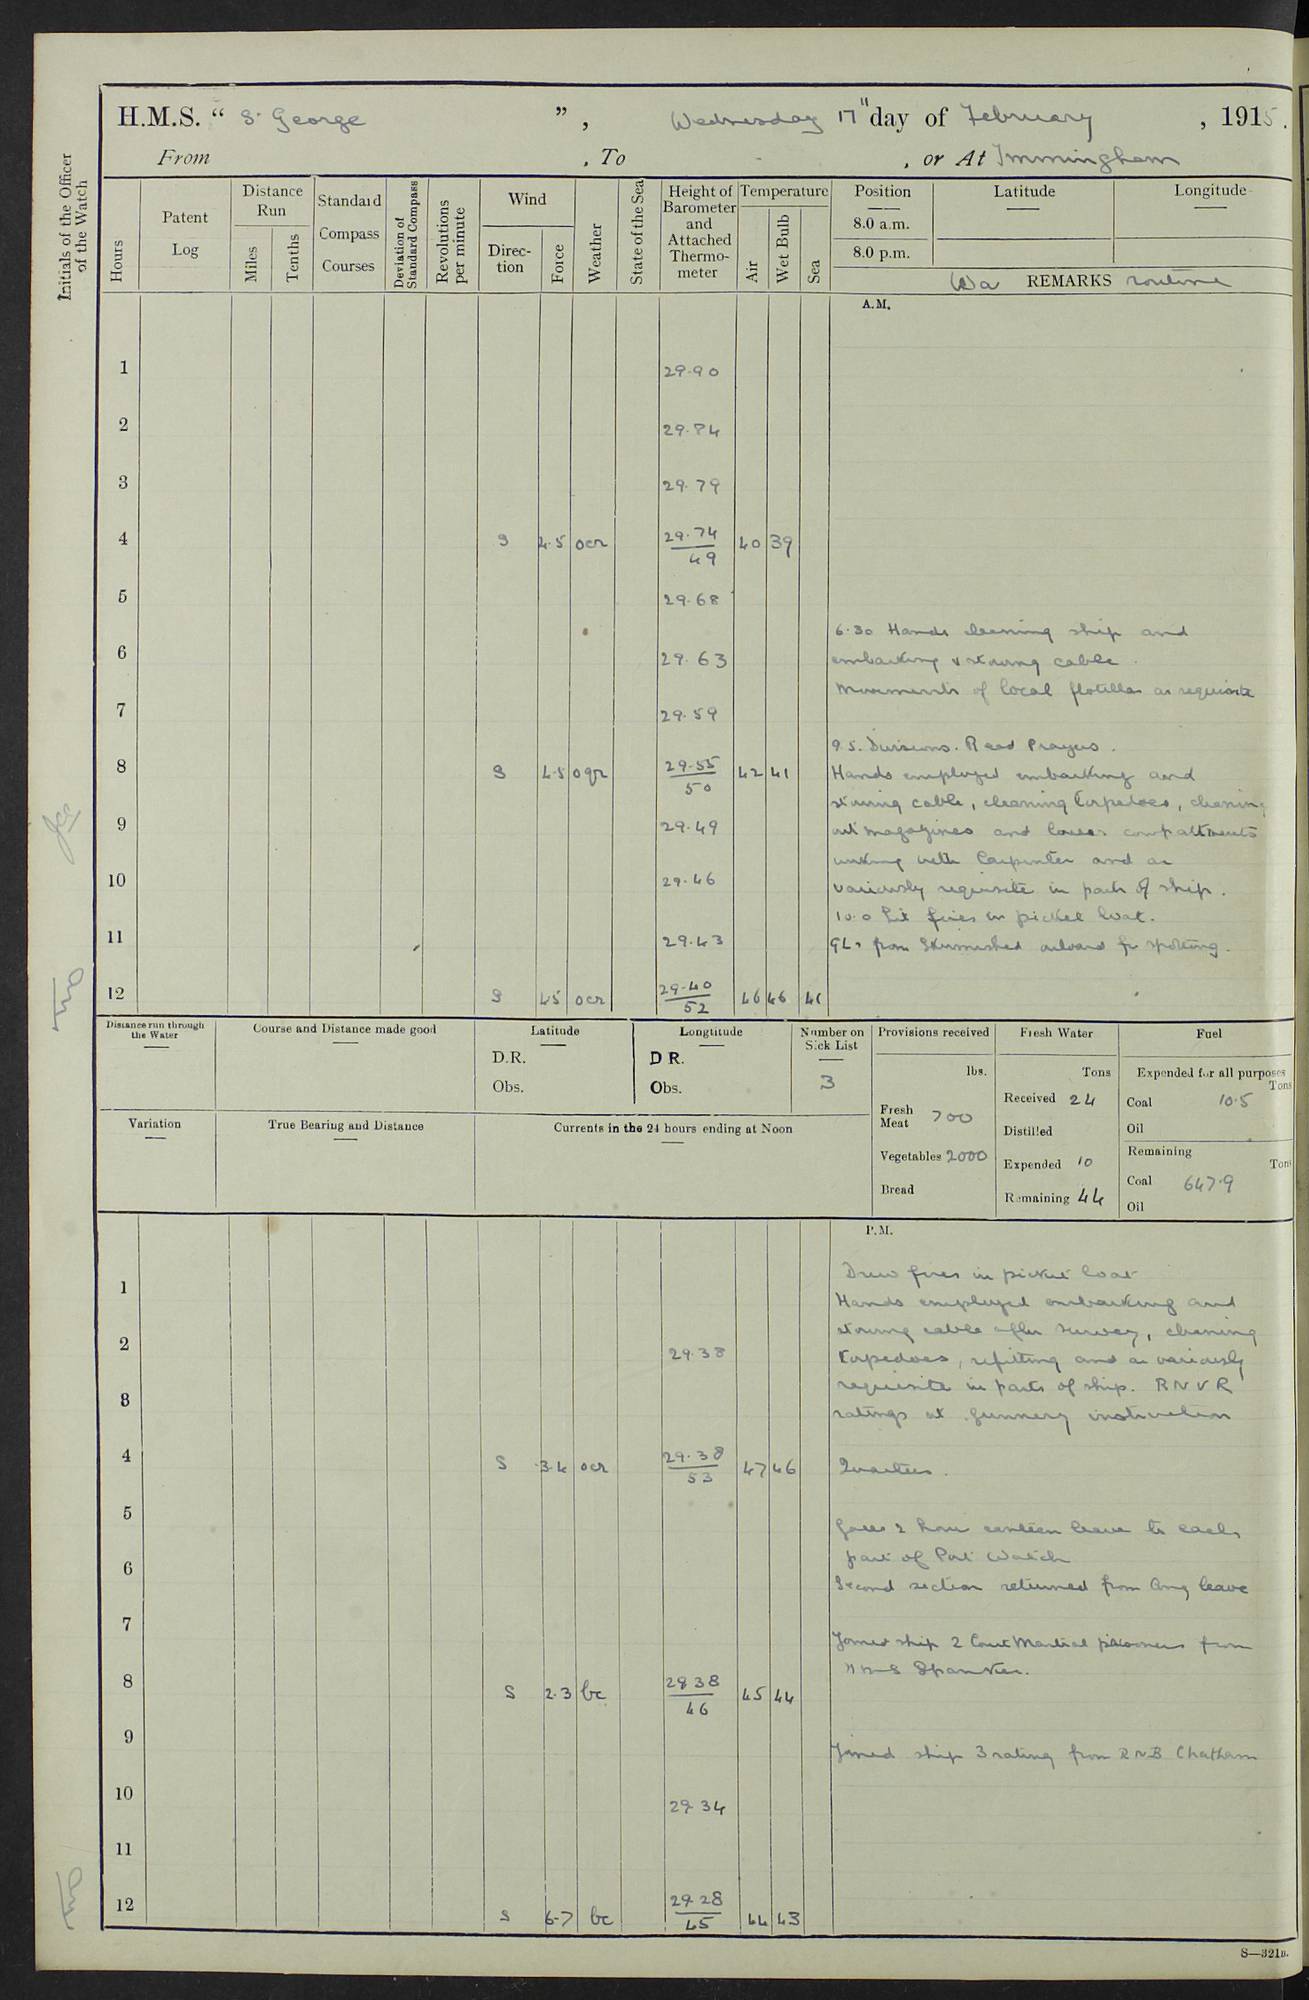 H.M.S. “ St George ” , Wednesday 17th day of February , 1915.
From , To , or At Immingham
Initials of the Officer of the Watch
Hours
Patent Log
Distance Run
Miles
Tenths
Standard Compass Courses
Deviation of Standard Compass
Revolutions per minute
Wind
Direc-tion
Force
Weather
State of the Sea
Height of Barometer and Attached Thermo-meter
Temperature
Air
Wet Bulb
Sea
Position Latitude Longitude
8.0 a.m.
8.0 p.m.
REMARKS routine
A.M.
1 29.90
2 29.84
3 29.79
4 S 4.5 ocr 29.74 40 39
49
5 29.68
6.30 Hands cleaning ship and
6 29.63 embarking & stowing cable.
Movements of local flotillas as requisite
7 29.59
9.5. Divisions. Read Prayers.
8 S 4.5 oqr 29.55 42 41 Hands employed embarking and
50
stowing cable, cleaning torpedoes, cleaning
9 29.49 out magazines and lower compartments
working with Carpenter and as
10 29.46 variously requisite in parts of ship.
10.0 Lit fires in picket boat.
11 29.43 GLs from Skirmisher onboard for spotting.
12 S 4.5 ocr 29.40 46 46 41
52
Distance run through the Water
Course and Distance made good
Latitude
D.R.
Obs.
Longtitude
D R.
Obs.
Number on Sick List
3
Provisions received
lbs.
Fresh Meat 700
Vegetables 2000
Bread
Fresh Water
Tons
Received 24
Distilled
Expended 10
Remaining 44
Fuel
Expended for all purposes
Tons
Coal 10.5
Oil
Remaining
Tons
Coal 647.9
Oil
Variation
True Bearing and Distance
Currents in the 24 hours ending at Noon
P.M.
Drew fires in picket boat
1 Hands employed embarking and
stowing cable after survey, cleaning
2 29.38 torpedoes, refitting and as variously
requisite in parts of ship. RNVR
3 ratings at gunnery instruction
4 S 3.4 ocr 29.38 47 46 Quarters.
53
5 Gave 2 hour canteen leave to each
part of Port Watch
6 Second section returned from long leave
7 Joined ship 2 Court Martial prisoners from
HMS Spanker.
8 S 2.3 bc 29 38 45 44
46
9 Joined ship 3 rating from RNB Chatham
10 29.34
11
12 S 6-7 bc 29.28 44 43
45
S—321B.